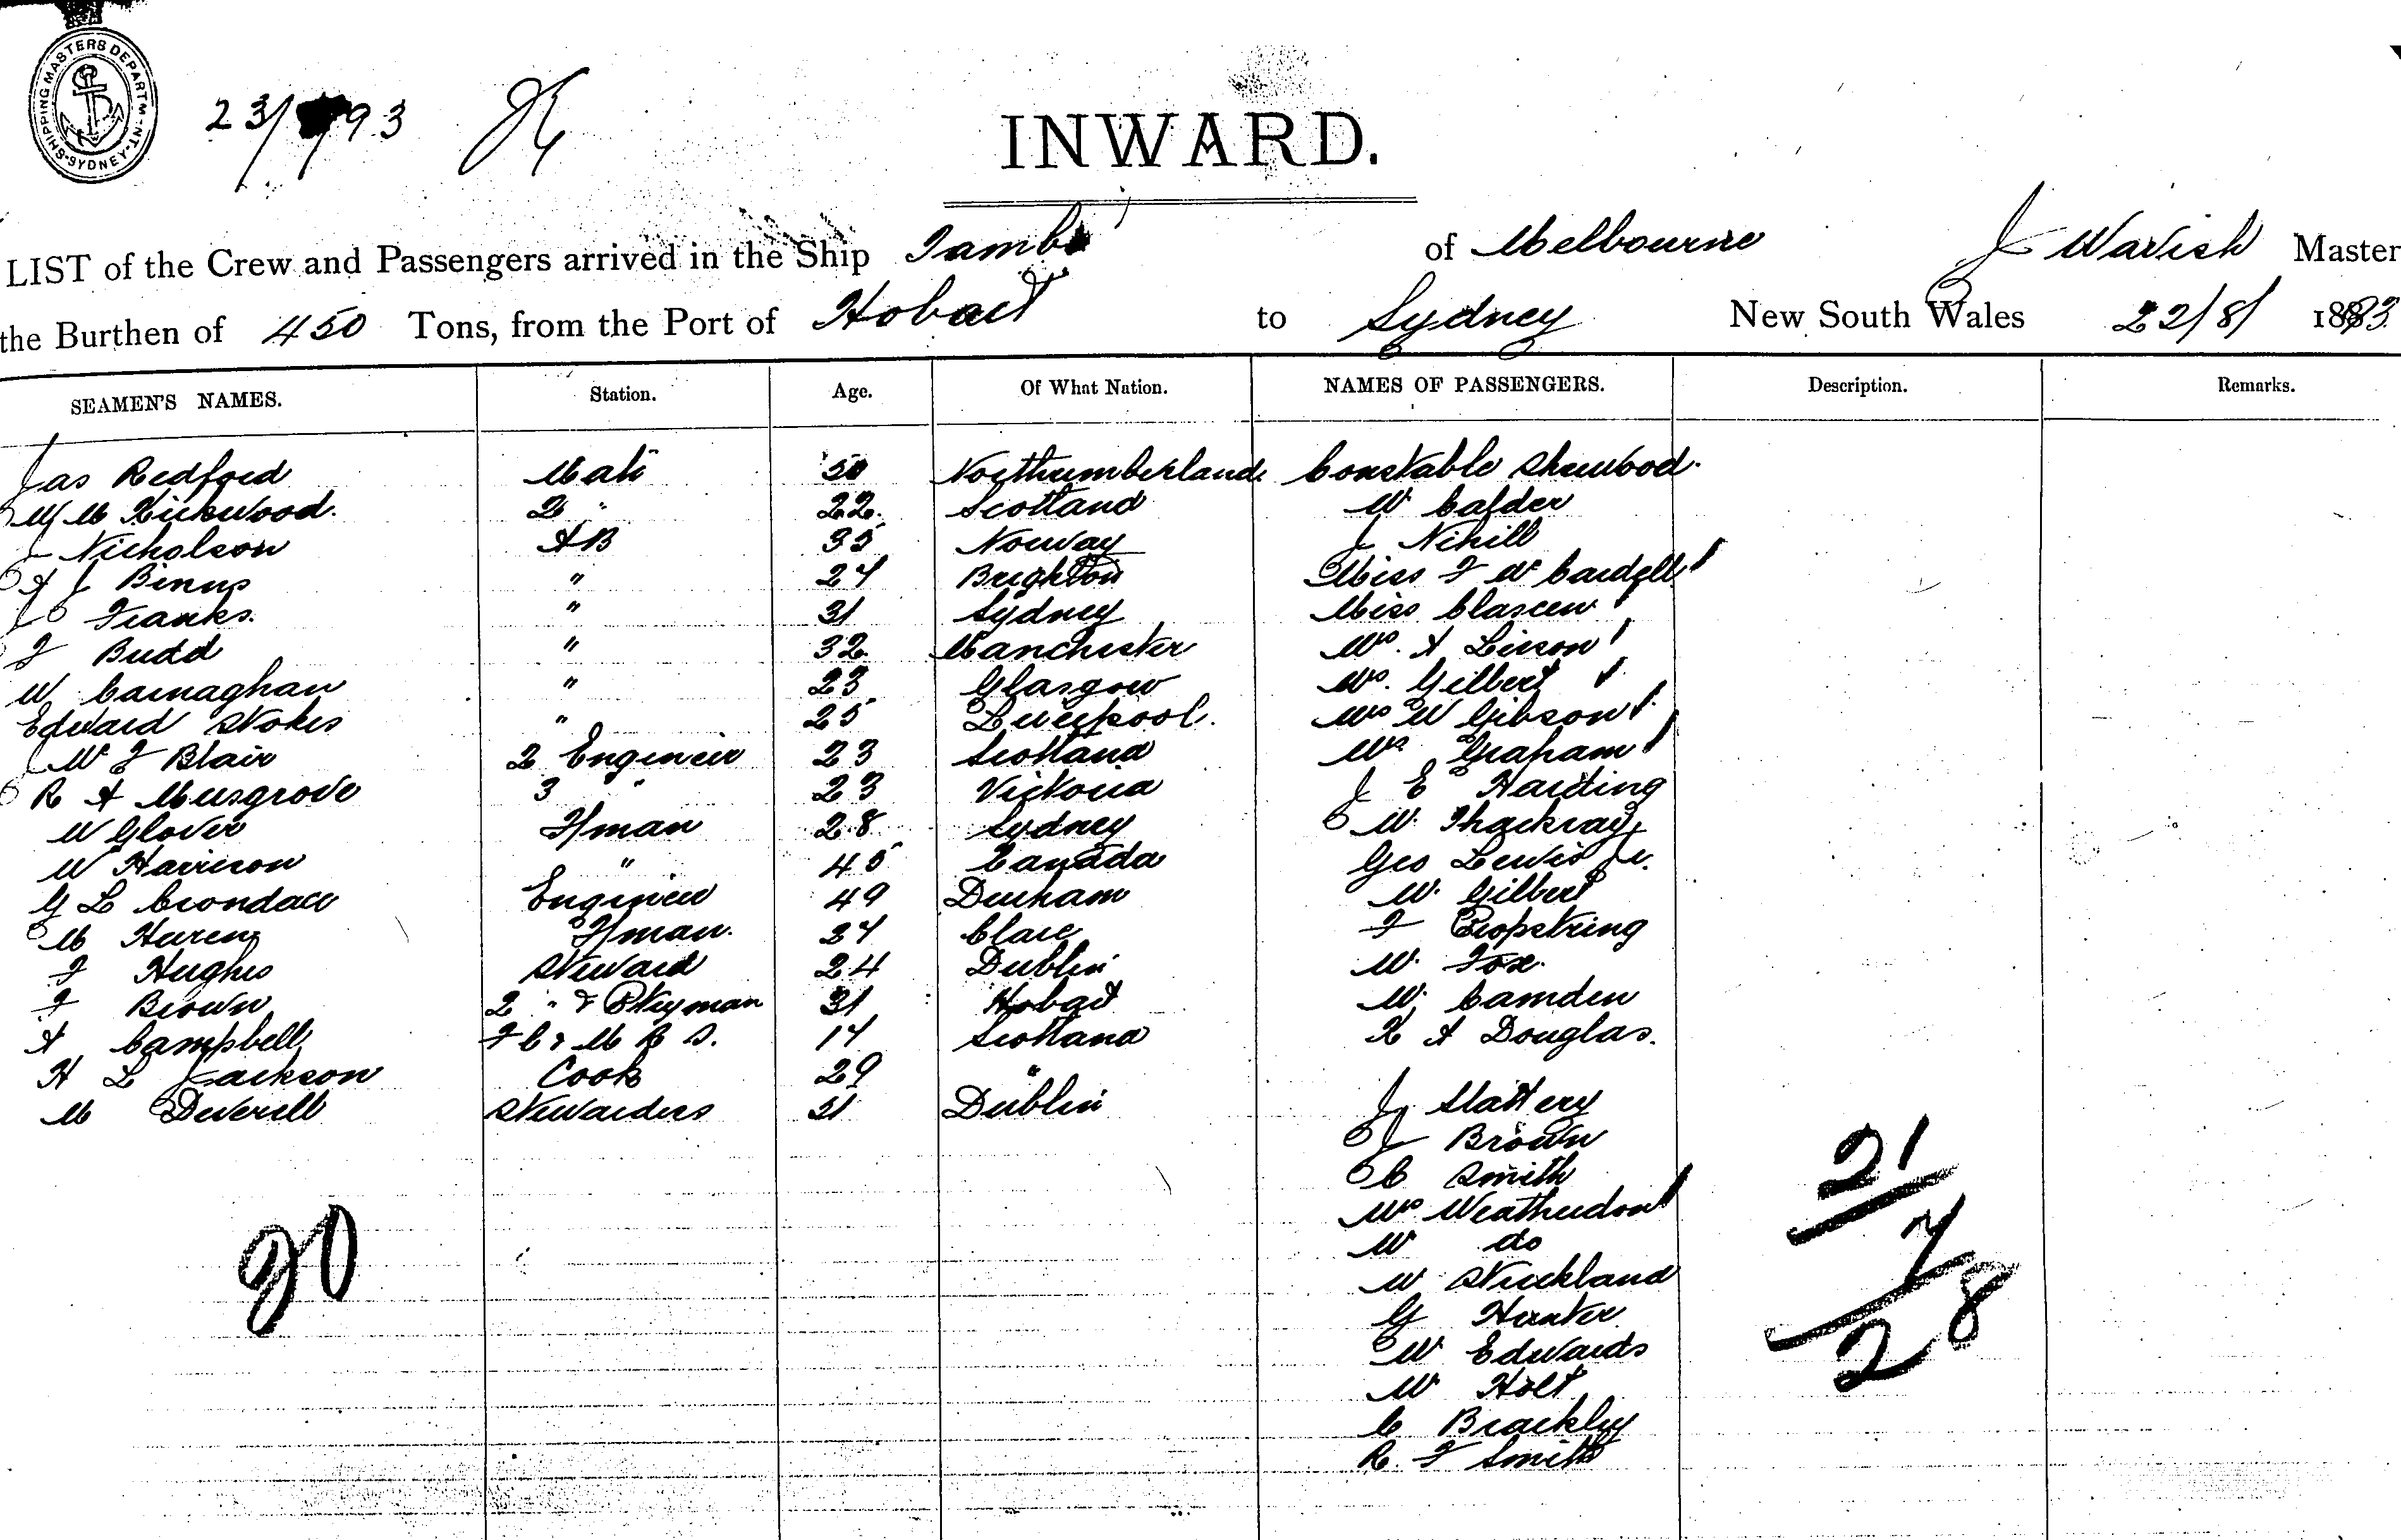 SHIPPING MASTERS DEPARTM-NT. SYDNEY
23/ 93
INWARD.
LIST of the Crew and Passengers arrived in the Ship of Melbourne J Master
the Burthen of 450 Tons, from the Port of Hobart to Sydney New South Wales 22/8/ 1893
SEAMEN'S NAMES. Station. Age. Of What Nation. NAMES OF PASSENGERS. Description. Remarks.
Jas Redford Mate 50 Northumberland Constable Sherwood.
W M Kirkwood. 2 " 22. Scotland W Calder
J Nicholson AB 35 Norway J Nihill
A J Binns " 24 Brighton Miss F W Cardell
J Franks. " 31 Sydney Miss
F Budd " 32 Manchester Mrs. A
W Carnaghan " 23 Glasgow Mrs. Gilbert
Edward Stokes " 25 Liverpool. Mrs W Gibson
W F Blair 2 Engineer 23 Scotland Mrs Graham
R A Musgrove 3 " 23 Victoria J E Harding
W Glover F/man 28 Sydney W. Thackray
W Harrison " 45 Canada Geo Lewis Jr.
G L Crondace Engineer 49 Durham W. Gilbert
M F/man. 34 Clare F Propstring
F Hughes Steward 24 Dublin W. Fox.
F Brown 2 " & 31 Hobart W. Camden
A Campbell 17 Scotland K A Douglas.
H L Jackson Cook 29 "
J Slattery
M Deverell Stewardess 31 Dublin
J Brown
C Smith
Mrs Weatherdon
W do
21
7
28
20
W Strickland
G Hunter
W Edwards
W Holt
C Brackley
R F Smith